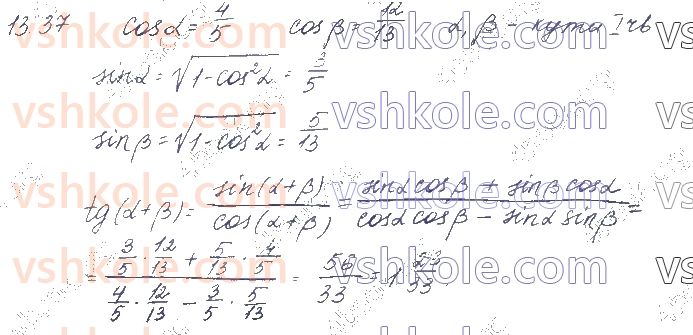 13.37 cosα = 4/5 cosβ = 12/13 α, β – кути I чв
sinα = √(1-cos²α) = 3/5
sinβ = √(1-cos²α) = 5/13
tg(α+β) = sin(α+β)/cos(α+β) = (sinα cosβ + sinβ cosα)/(cosα cosβ - sinα sinβ) =
= (3/5 · 12/13 + 5/13 · 4/5)/(4/5 · 12/13 - 3/5 · 5/13) = 56/33 = 1 23/33
vshkole.com vshkole.com vshkole.com
vshkole.com vshkole.com vshkole.com
vshkole.com vshkole.com vshkole.com
vshkole.com vshkole.com vshkole.com